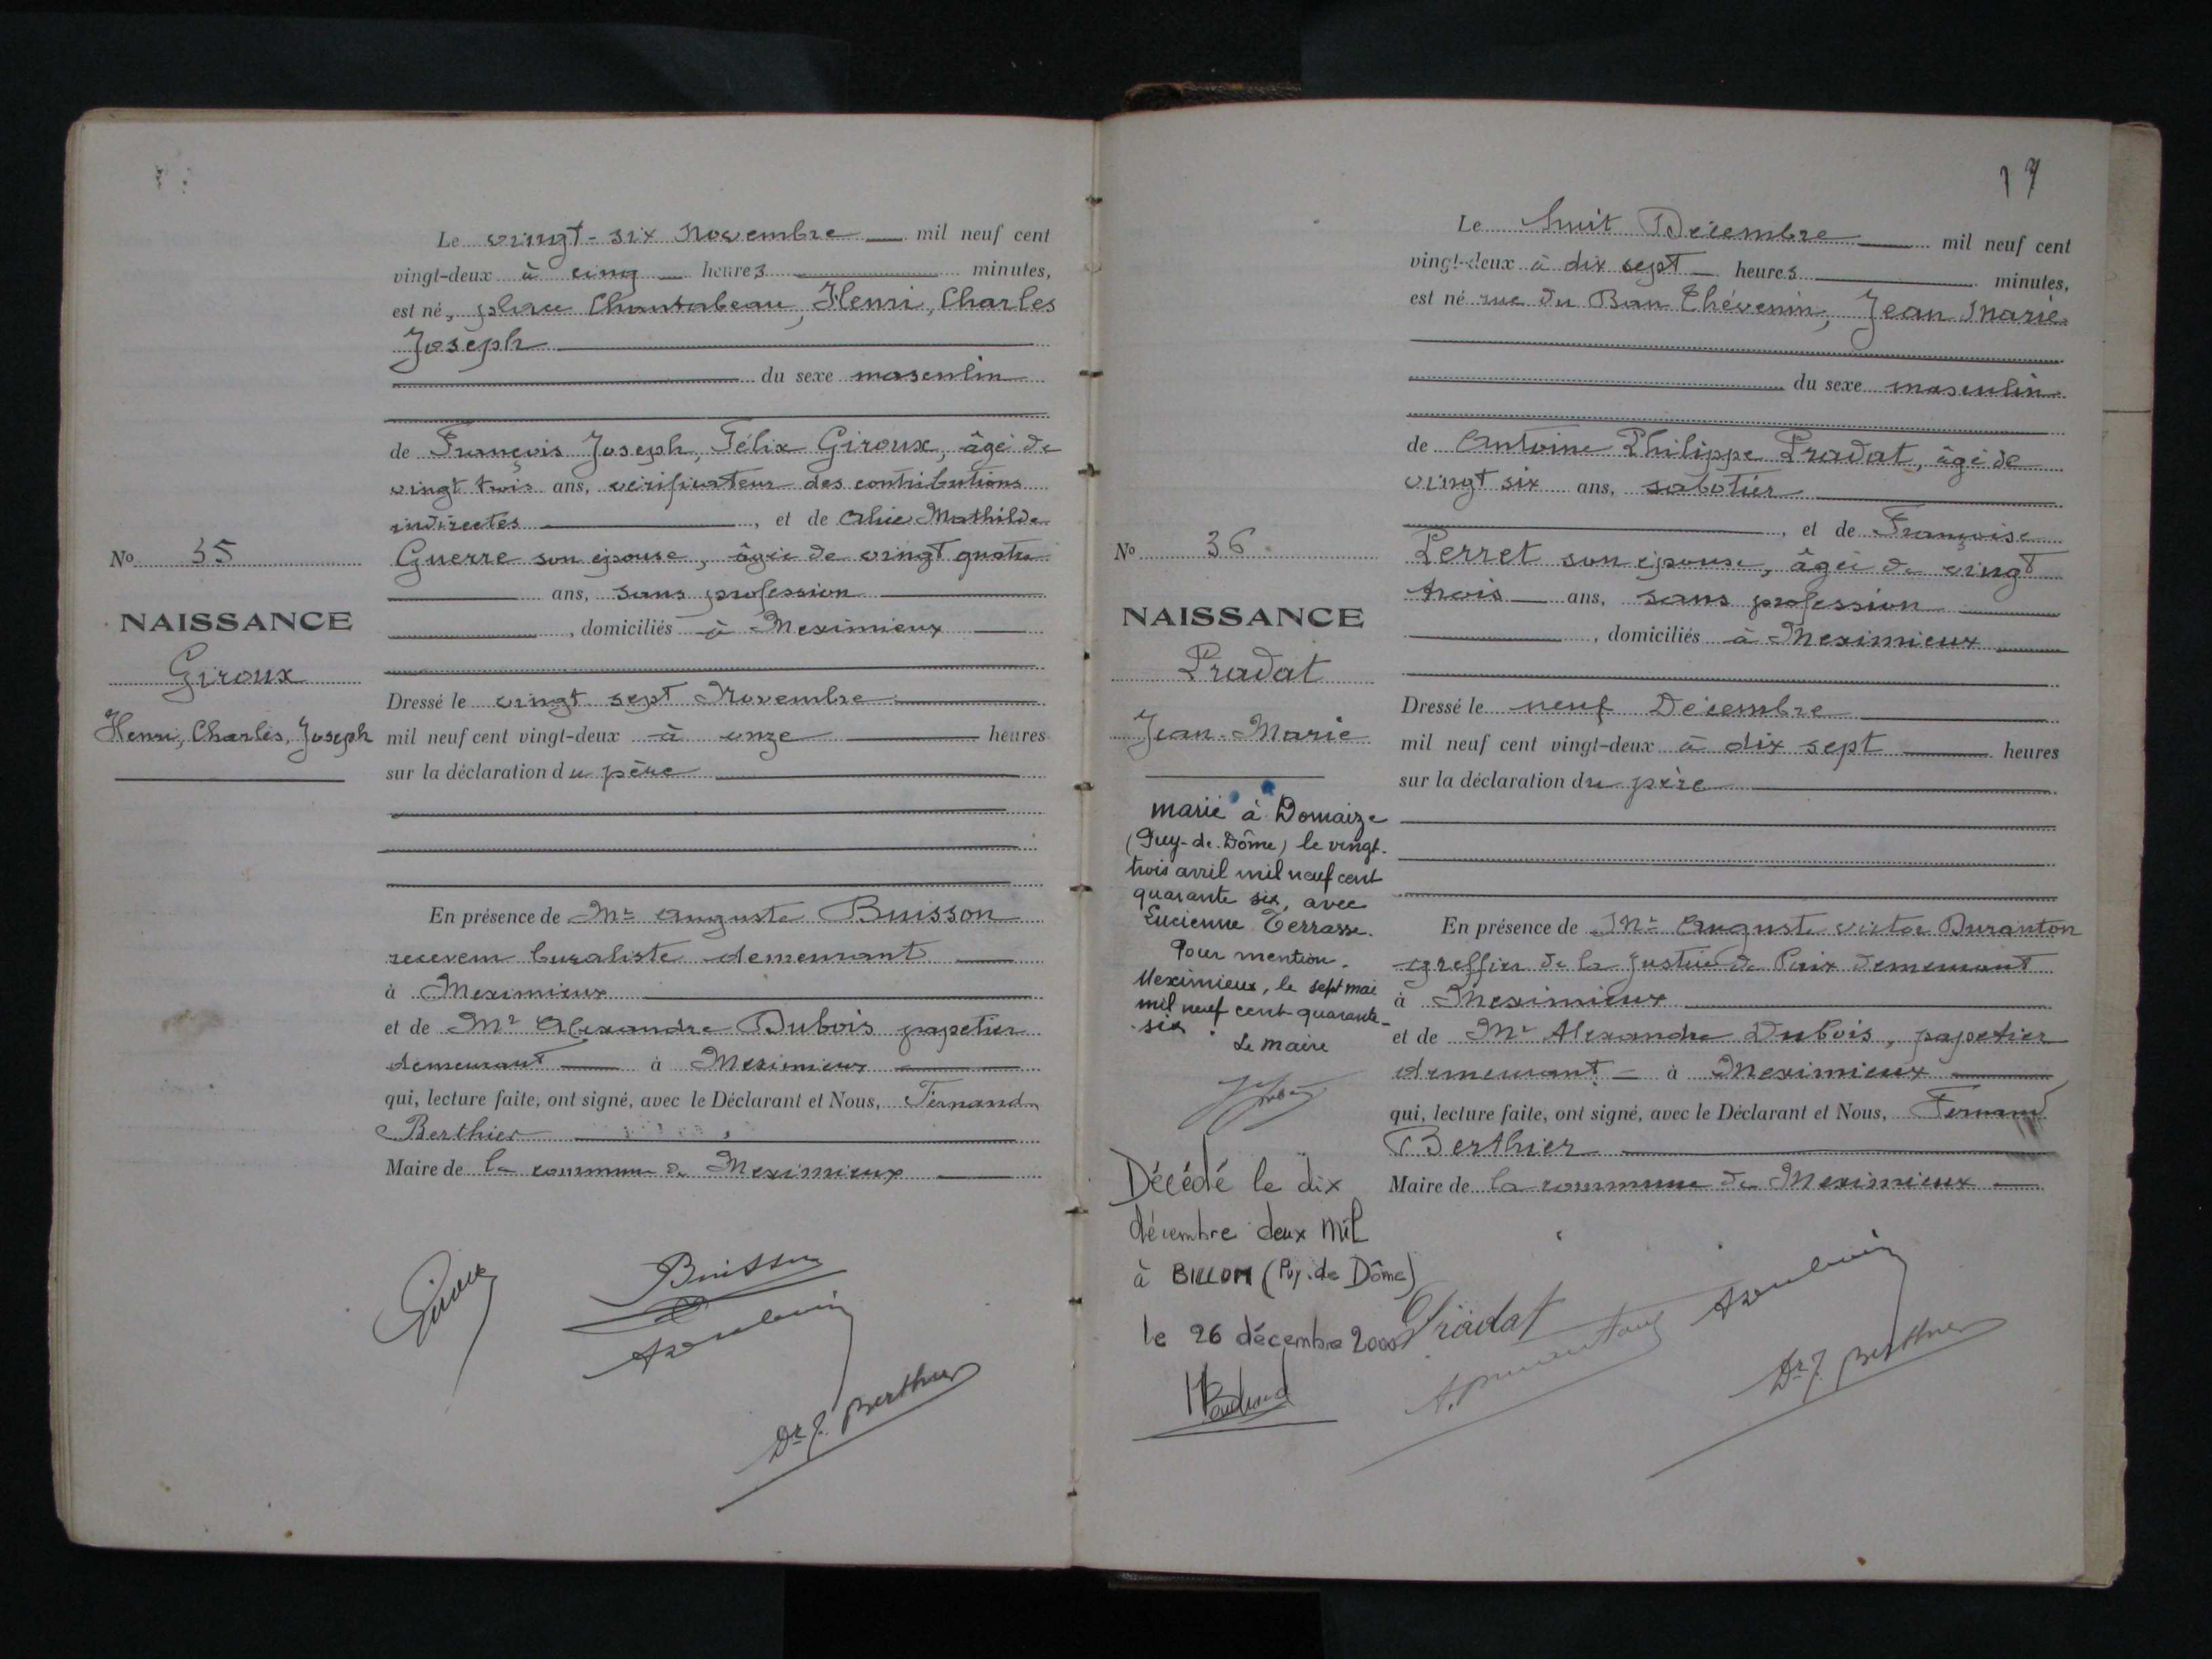 Le vingt-six Novembre mil neuf cent
vingt-deux à cinq heures minutes,
est né, place Chantabeau, Henri, Charles
Joseph
du sexe masculin
de François Joseph, Félix Giroux, âgé de
vingt trois ans, vérificateur des contributions
indirectes, et de Alice Mathilde
Guerre son épouse, âgée de vingt quatre
ans, sans profession
, domiciliés à Meximieux
Dressé le vingt sept Novembre
mil neuf cent vingt-deux à onze heures
sur la déclaration du père
En présence de Mr Auguste Buisson
receveur buraliste demeurant
à Meximieux
et de Mr Alexandre Dubois papetier
demeurant à Meximieux
qui, lecture faite, ont signé, avec le Déclarant et Nous, Fernand
Berthier
Maire de la commune de Meximieux
No 35
NAISSANCE
Giroux
Henri, Charles, Joseph
Giroux
Buisson
Dr F. Berthier
17
Le huit Décembre mil neuf cent
vingt-deux à dix sept heures minutes,
est né rue du Ban Thévenin, Jean Marie
du sexe masculin
de Antoine Philippe Pradat, âgé de
vingt six ans, sabotier
, et de Françoise
Perret son épouse, âgée de vingt
trois ans, sans profession
, domiciliés à Meximieux
Dressé le neuf Décembre
mil neuf cent vingt-deux à dix sept heures
sur la déclaration du père
En présence de Mr Auguste Victor Duranton
greffier de la Justice de Paix demeurant
à Meximieux
et de Mr Alexandre Dubois, papetier
demeurant à Meximieux
qui, lecture faite, ont signé, avec le Déclarant et Nous, Fernand
Berthier
Maire de la commune de Meximieux
No 36
NAISSANCE
Pradat
Jean-Marie
marié à Domaize
(Puy-de-Dôme) le vingt-
trois avril mil neuf cent
quarante six, avec
Lucienne Terrasse.
Pour mention.
Meximieux, le sept mai
mil neuf cent quarante-
six
Le Maire
Décédé le dix
décembre deux mil
à BILLOM (Puy. de Dôme)
le 26 décembre 2000
Pradat
A. Duranton
Dr F. Berthier